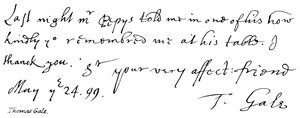 Last night mr Pepys told me in one of his how
kindly yo remembred me at his table. I
thank you. Sr your very affect: friend
May ye 24. 99.
T. Gale
Thomas Gale.